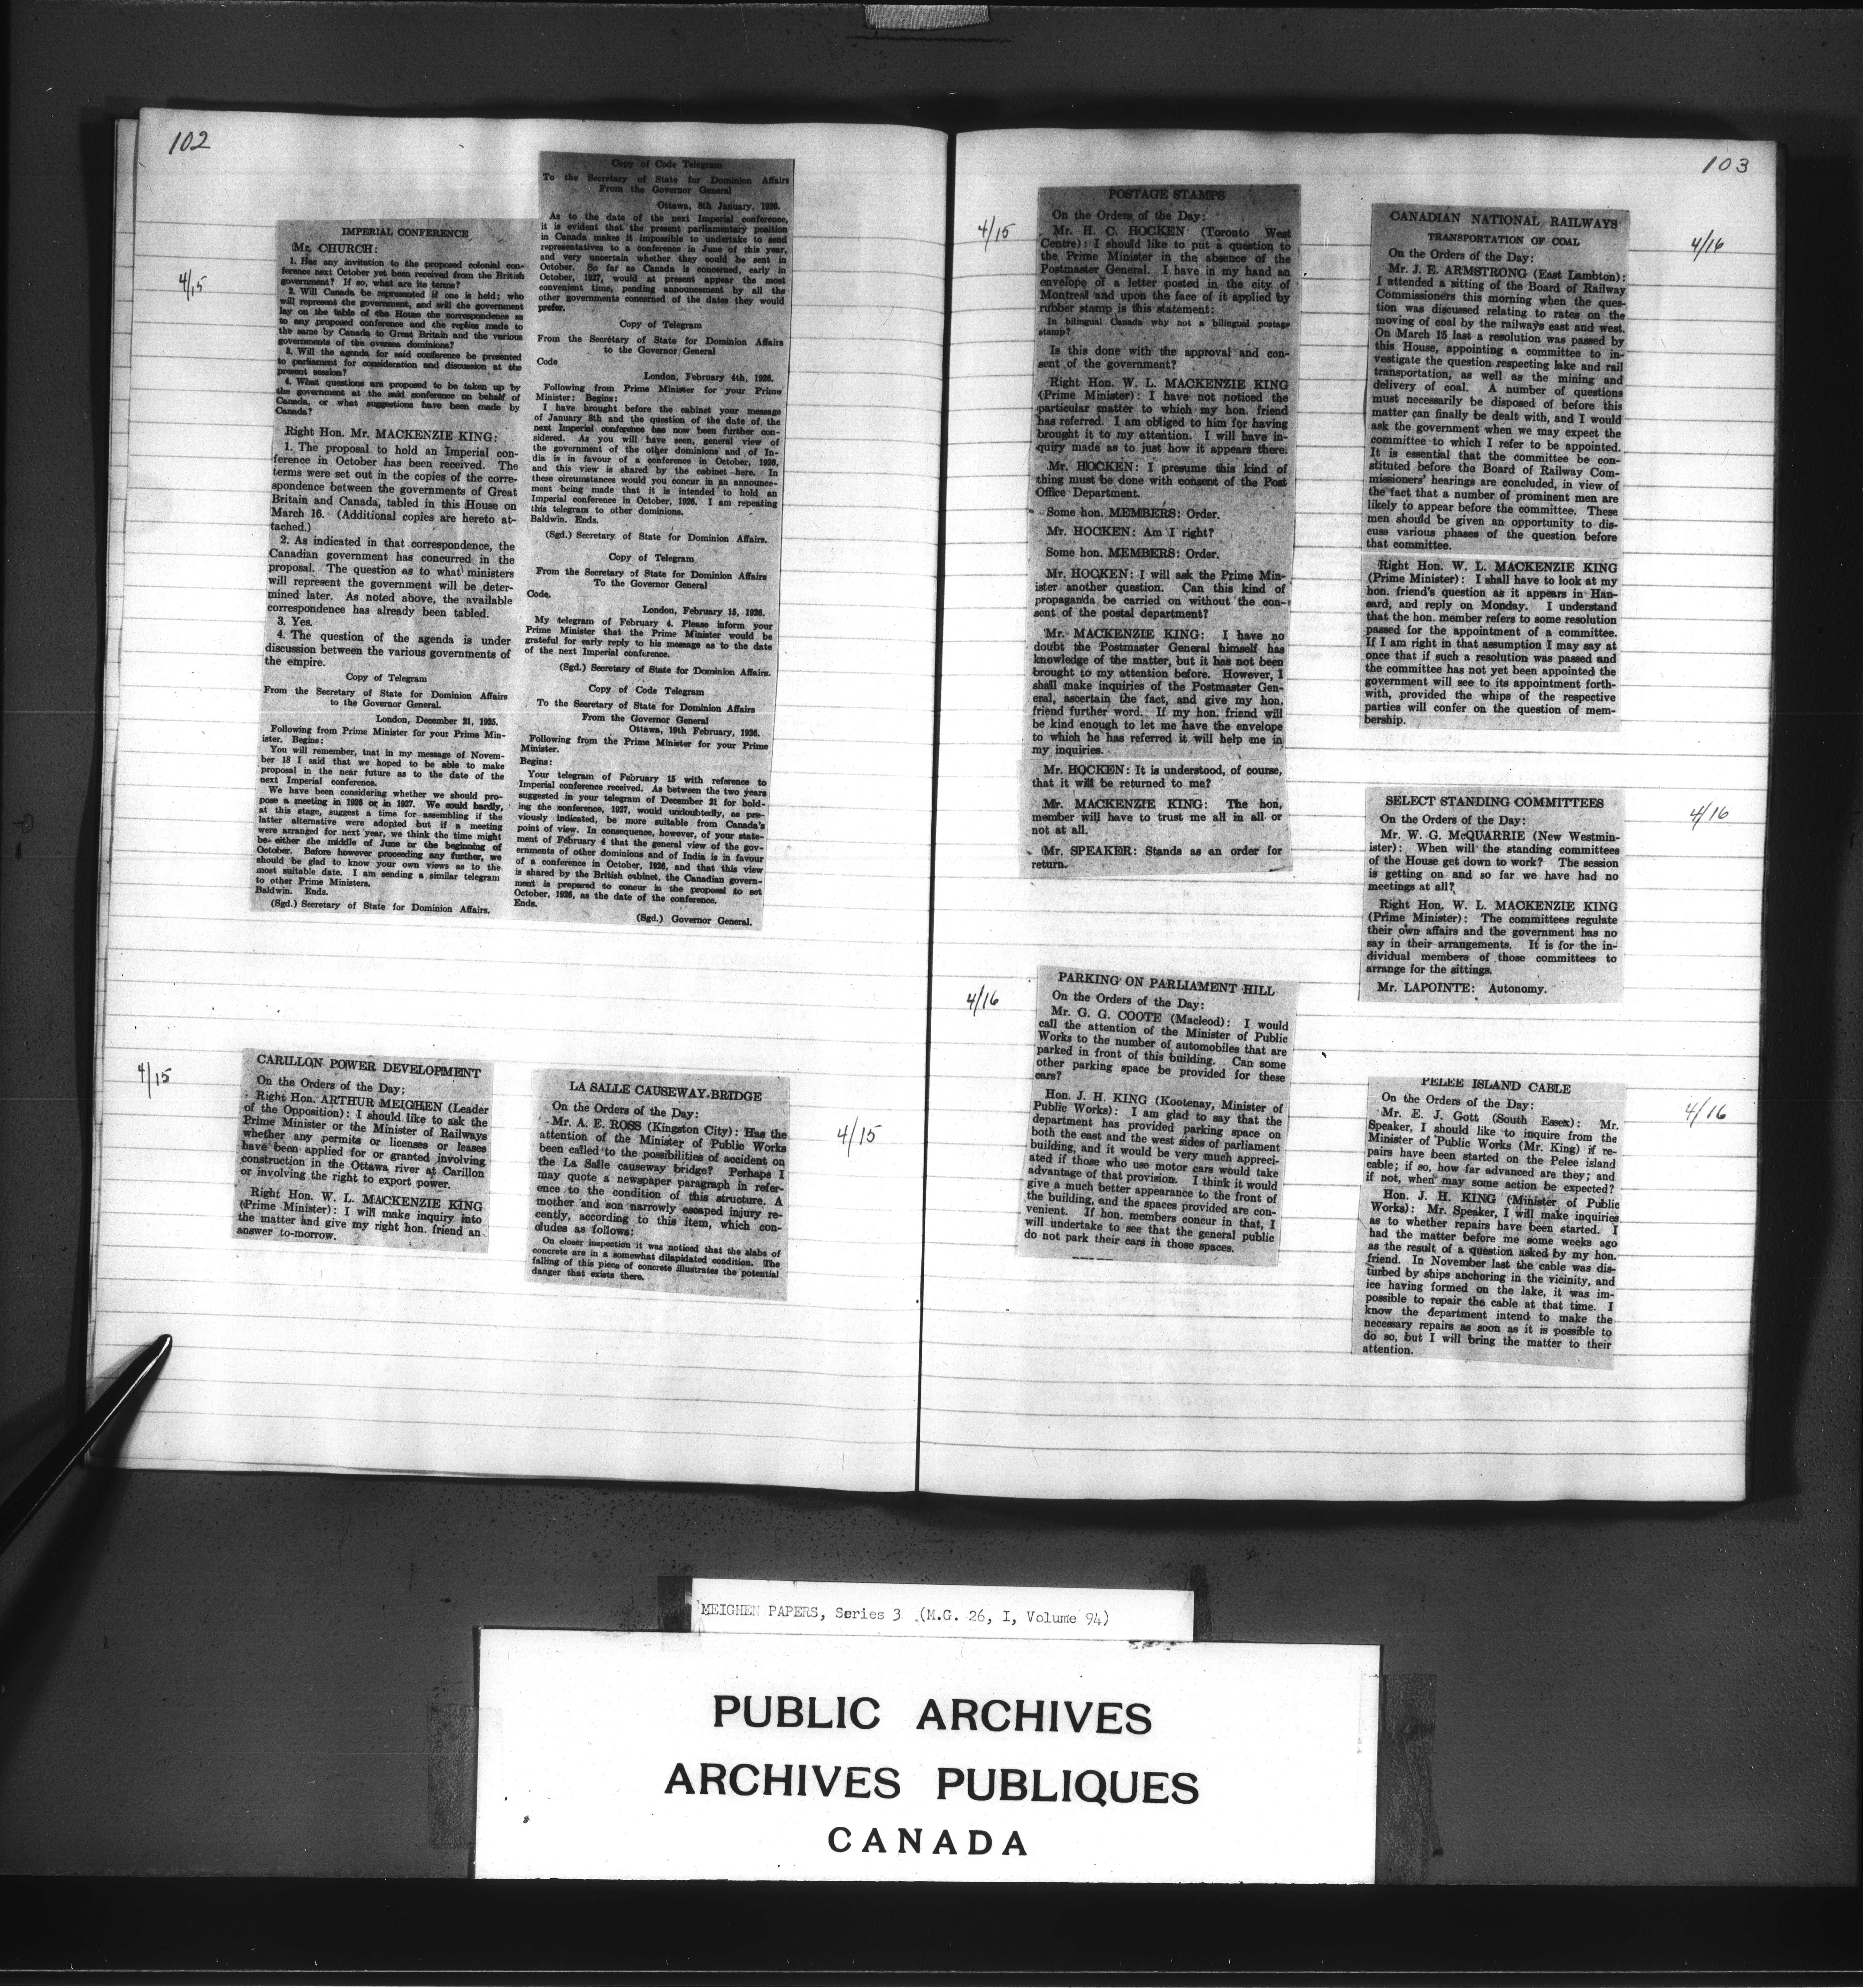 102
4/15
IMPERIAL CONFERENCE
Mr. CHURCH:
1. Has any invitation to the proposed colonial con-
ference next October yet been received from the British
government? If so, what are its terms?
2. Will Canada be represented if one is held; who
will represent the government, and will the government
lay on the table of the House the correspondence as
to any proposed conference and the replies made to
the same by Canada to Great Britain and the various
governments of the oversea dominions?
3. Will the agenda for said conference be presented
to parliament for consideration and discussion at the
present session?
4. What questions are proposed to be taken up by
the government at the said conference on behalf of
Canada, or what suggestions have been made by
Canada?
Right Hon. Mr. MACKENZIE KING:
1. The proposal to hold an Imperial con-
ference in October has been received. The
terms were set out in the copies of the corre-
spondence between the governments of Great
Britain and Canada, tabled in this House on
March 16. (Additional copies are hereto at-
tached.)
2. As indicated in that correspondence, the
Canadian government has concurred in the
proposal. The question as to what ministers
will represent the government will be deter-
mined later. As noted above, the available
correspondence has already been tabled.
3. Yes.
4. The question of the agenda is under
discussion between the various governments of
the empire.
Copy of Telegram
From the Secretary of State for Dominion Affairs
to the Governor General.
London, December 21, 1925.
Following from Prime Minister for your Prime Min-
ister. Begins:
You will remember, that in my message of Novem-
ber 18 I said that we hoped to be able to make
proposal in the near future as to the date of the
next Imperial conference.
We have been considering whether we should pro-
pose a meeting in 1926 or in 1927. We could hardly,
at this stage, suggest a time for assembling if the
latter alternative were adopted but if a meeting
were arranged for next year, we think the time might
be either the middle of June or the beginning of
October. Before however proceeding any further, we
should be glad to know your own views as to the
most suitable date. I am sending a similar telegram
to other Prime Ministers.
Baldwin. Ends.
(Sgd.) Secretary of State for Dominion Affairs.
Copy of Code Telegram
To the Secretary of State for Dominion Affairs
From the Governor General
Ottawa, 8th January, 1926.
As to the date of the next Imperial conference,
it is evident that the present parliamentary position
in Canada makes it impossible to undertake to send
representatives to a conference in June of this year,
and very uncertain whether they could be sent in
October. So far as Canada is concerned, early in
October, 1927, would at present appear the most
convenient time, pending announcement by all the
other governments concerned of the dates they would
prefer.
Copy of Telegram
From the Secretary of State for Dominion Affairs
to the Governor General
Code
London, February 4th, 1926.
Following from Prime Minister for your Prime
Minister: Begins:
I have brought before the cabinet your message
of January 8th and the question of the date of the
next Imperial conference has now been further con-
sidered. As you will have seen, general view of
the government of the other dominions and of In-
dia is in favour of a conference in October, 1926,
and this view is shared by the cabinet here. In
these circumstances would you concur in an announce-
ment being made that it is intended to hold an
Imperial conference in October, 1926. I am repeating
this telegram to other dominions.
Baldwin. Ends.
(Sgd.) Secretary of State for Dominion Affairs.
Copy of Telegram
From the Secretary of State for Dominion Affairs
To the Governor General
Code.
London, February 15, 1926.
My telegram of February 4. Please inform your
Prime Minister that the Prime Minister would be
grateful for early reply to his message as to the date
of the next Imperial conference.
(Sgd.) Secretary of State for Dominion Affairs.
Copy of Code Telegram
To the Secretary of State for Dominion Affairs
From the Governor General
Ottawa, 19th February, 1926.
Following from the Prime Minister for your Prime
Minister.
Begins:
Your telegram of February 15 with reference to
Imperial conference received. As between the two years
suggested in your telegram of December 21 for hold-
ing the conference, 1927, would undoubtedly, as pre-
viously indicated, be more suitable from Canada's
point of view. In consequence, however, of your state-
ment of February 4 that the general view of the gov-
ernments of other dominions and of India is in favour
of a conference in October, 1926, and that this view
is shared by the British cabinet, the Canadian govern-
ment is prepared to concur in the proposal to set
October, 1926, as the date of the conference.
Ends.
(Sgd.) Governor General.
4/15
CARILLON POWER DEVELOPMENT
On the Orders of the Day:
Right Hon. ARTHUR MEIGHEN (Leader
of the Opposition): I should like to ask the
Prime Minister or the Minister of Railways
whether any permits or licenses or leases
have been applied for or granted involving
construction in the Ottawa river at Carillon
or involving the right to export power.
Right Hon. W. L. MACKENZIE KING
(Prime Minister): I will make inquiry into
the matter and give my right hon. friend an
answer to-morrow.
LA SALLE CAUSEWAY BRIDGE
On the Orders of the Day:
Mr. A. E. ROSS (Kingston City): Has the
attention of the Minister of Public Works
been called to the possibilities of accident on
the La Salle causeway bridge? Perhaps I
may quote a newspaper paragraph in refer-
ence to the condition of this structure. A
mother and son narrowly escaped injury re-
cently, according to this item, which con-
cludes as follows:
On closer inspection it was noticed that the slabs of
concrete are in a somewhat dilapidated condition. The
falling of this piece of concrete illustrates the potential
danger that exists there.
4/15
103
4/15
POSTAGE STAMPS
On the Orders of the Day:
Mr. H. C. HOCKEN (Toronto West
Centre): I should like to put a question to
the Prime Minister in the absence of the
Postmaster General. I have in my hand an
envelope of a letter posted in the city of
Montreal and upon the face of it applied by
rubber stamp is this statement:
In bilingual Canada why not a bilingual postage
stamp?
Is this done with the approval and con-
sent of the government?
Right Hon. W. L. MACKENZIE KING
(Prime Minister): I have not noticed the
particular matter to which my hon. friend
has referred. I am obliged to him for having
brought it to my attention. I will have in-
quiry made as to just how it appears there.
Mr. HOCKEN: I presume this kind of
thing must be done with consent of the Post
Office Department.
Some hon. MEMBERS: Order.
Mr. HOCKEN: Am I right?
Some hon. MEMBERS: Order.
Mr. HOCKEN: I will ask the Prime Min-
ister another question. Can this kind of
propaganda be carried on without the con-
sent of the postal department?
Mr. MACKENZIE KING: I have no
doubt the Postmaster General himself has
knowledge of the matter, but it has not been
brought to my attention before. However, I
shall make inquiries of the Postmaster Gen-
eral, ascertain the fact, and give my hon.
friend further word. If my hon. friend will
be kind enough to let me have the envelope
to which he has referred it will help me in
my inquiries.
Mr. HOCKEN: It is understood, of course,
that it will be returned to me?
Mr. MACKENZIE KING: The hon.
member will have to trust me all in all or
not at all.
Mr. SPEAKER: Stands as an order for
return.
4/16
PARKING ON PARLIAMENT HILL
On the Orders of the Day:
Mr. G. G. COOTE (Macleod): I would
call the attention of the Minister of Public
Works to the number of automobiles that are
parked in front of this building. Can some
other parking space be provided for these
cars?
Hon. J. H. KING (Kootenay, Minister of
Public Works): I am glad to say that the
department has provided parking space on
both the east and the west sides of parliament
building, and it would be very much appreci-
ated if those who use motor cars would take
advantage of that provision. I think it would
give a much better appearance to the front of
the building, and the spaces provided are con-
venient. If hon. members concur in that, I
will undertake to see that the general public
do not park their cars in those spaces.
CANADIAN NATIONAL RAILWAYS
TRANSPORTATION OF COAL
On the Orders of the Day:
Mr. J. E. ARMSTRONG (East Lambton):
I attended a sitting of the Board of Railway
Commissioners this morning when the ques-
tion was discussed relating to rates on the
moving of coal by the railways east and west.
On March 15 last a resolution was passed by
this House, appointing a committee to in-
vestigate the question respecting lake and rail
transportation, as well as the mining and
delivery of coal. A number of questions
must necessarily be disposed of before this
matter can finally be dealt with, and I would
ask the government when we may expect the
committee to which I refer to be appointed.
It is essential that the committee be con-
stituted before the Board of Railway Com-
missioners' hearings are concluded, in view of
the fact that a number of prominent men are
likely to appear before the committee. These
men should be given an opportunity to dis-
cuss various phases of the question before
that committee.
Right Hon. W. L. MACKENZIE KING
(Prime Minister): I shall have to look at my
hon. friend's question as it appears in Han-
sard, and reply on Monday. I understand
that the hon. member refers to some resolution
passed for the appointment of a committee.
If I am right in that assumption I may say at
once that if such a resolution was passed and
the committee has not yet been appointed the
government will see to its appointment forth-
with, provided the whips of the respective
parties will confer on the question of mem-
bership.
4/16
SELECT STANDING COMMITTEES
On the Orders of the Day:
Mr. W. G. McQUARRIE (New Westmin-
ister): When will the standing committees
of the House get down to work? The session
is getting on and so far we have had no
meetings at all?
Right Hon. W. L. MACKENZIE KING
(Prime Minister): The committees regulate
their own affairs and the government has no
say in their arrangements. It is for the in-
dividual members of those committees to
arrange for the sittings.
Mr. LAPOINTE: Autonomy.
4/16
PELEE ISLAND CABLE
On the Orders of the Day:
Mr. E. J. Gott (South Essex): Mr.
Speaker, I should like to inquire from the
Minister of Public Works (Mr. King) if re-
pairs have been started on the Pelee island
cable; if so, how far advanced are they; and
if not, when may some action be expected?
Hon. J. H. KING (Minister of Public
Works): Mr. Speaker, I will make inquiries
as to whether repairs have been started. I
had the matter before me some weeks ago
as the result of a question asked by my hon.
friend. In November last the cable was dis-
turbed by ships anchoring in the vicinity, and
ice having formed on the lake, it was im-
possible to repair the cable at that time. I
know the department intend to make the
necessary repairs as soon as it is possible to
do so, but I will bring the matter to their
attention.
4/16
MEIGHEN PAPERS, Series 3 (M.G. 26, I, Volume 94)
PUBLIC ARCHIVES
ARCHIVES PUBLIQUES
CANADA